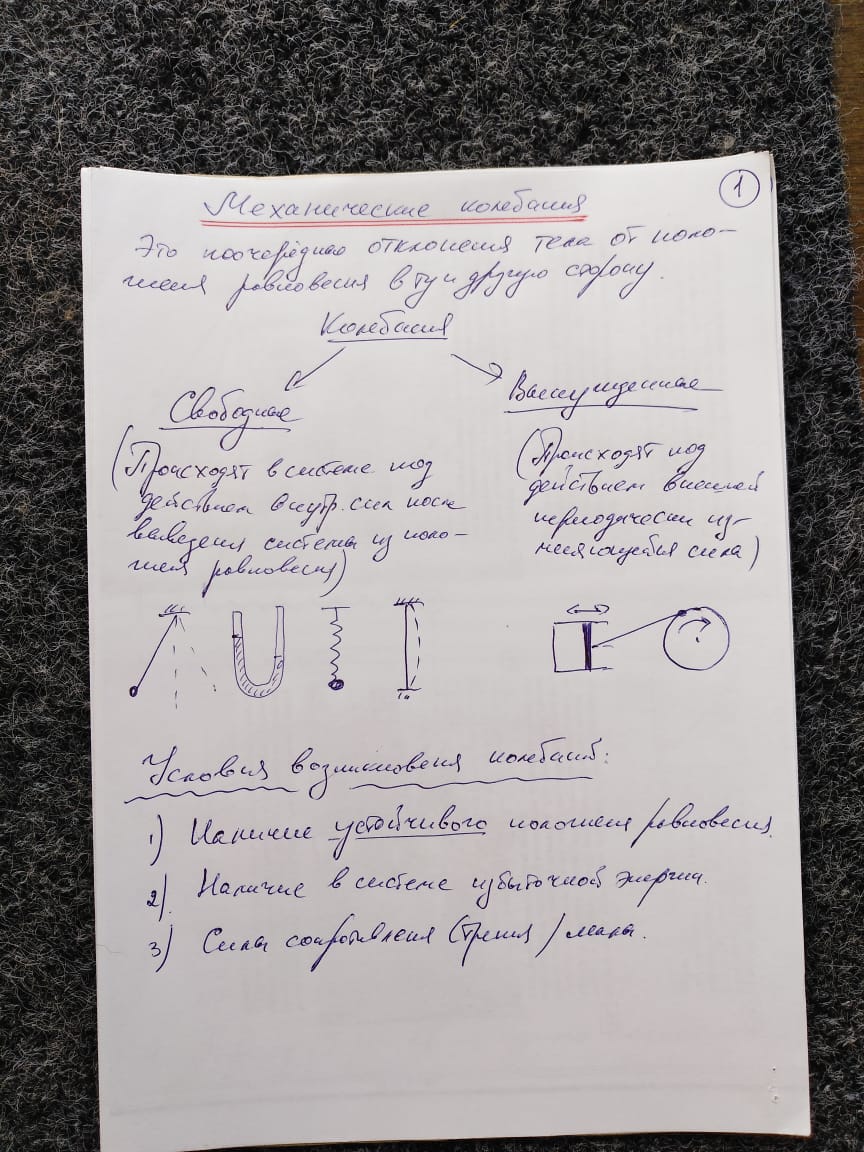 1
Механические колебания
Это поочерёдное отклонения тела от поло-
жения равновесия в ту и другую сторону.
Колебания
Свободные
Вынужденные
(Происходят в системе под
действием внутр. сил после
выведения системы из поло-
жения равновесия)
(Происходят под
действием внешней
периодически из-
меняющейся силы)
Условия возникновения колебаний:
1) Наличие устойчивого положения равновесия.
2). Наличие в системе избыточной энергии.
3) Силы сопротивления (трения) малы.